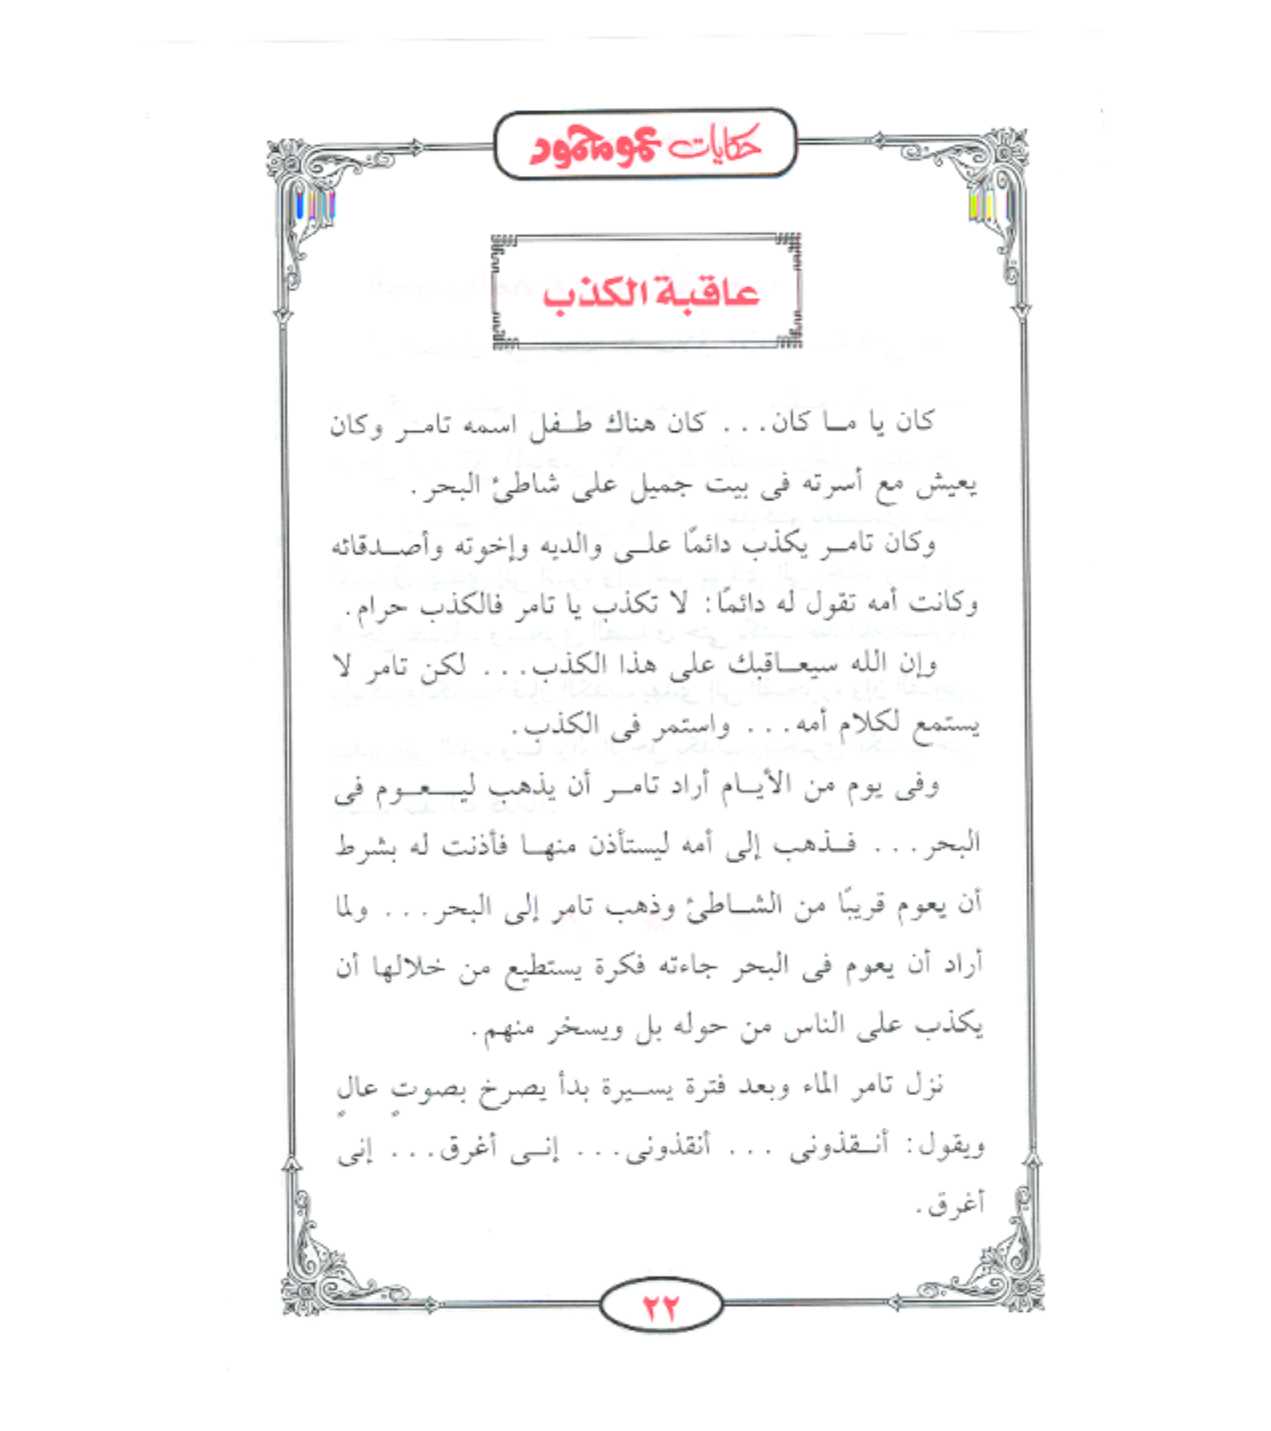 حكايات عمو محمود
عاقبة الكذب
كان يا ما كان... كان هناك طفل اسمه تامر وكان
يعيش مع أسرته فى بيت جميل على شاطئ البحر.
وكان تامر يكذب دائمًا على والديه وإخوته وأصدقائه
وكانت أمه تقول له دائمًا: لا تكذب يا تامر فالكذب حرام.
وإن الله سيعاقبك على هذا الكذب... لكن تامر لا
يستمع لكلام أمه... واستمر فى الكذب.
وفى يوم من الأيام أراد تامر أن يذهب ليعوم فى
البحر... فذهب إلى أمه ليستأذن منها فأذنت له بشرط
أن يعوم قريبًا من الشاطئ وذهب تامر إلى البحر... ولما
أراد أن يعوم فى البحر جاءته فكرة يستطيع من خلالها أن
يكذب على الناس من حوله بل ويسخر منهم.
نزل تامر الماء وبعد فترة يسيرة بدأ يصرخ بصوتٍ عالٍ
ويقول: أنقذونى ... أنقذونى... إنى أغرق... إنى
أغرق.
٢٢